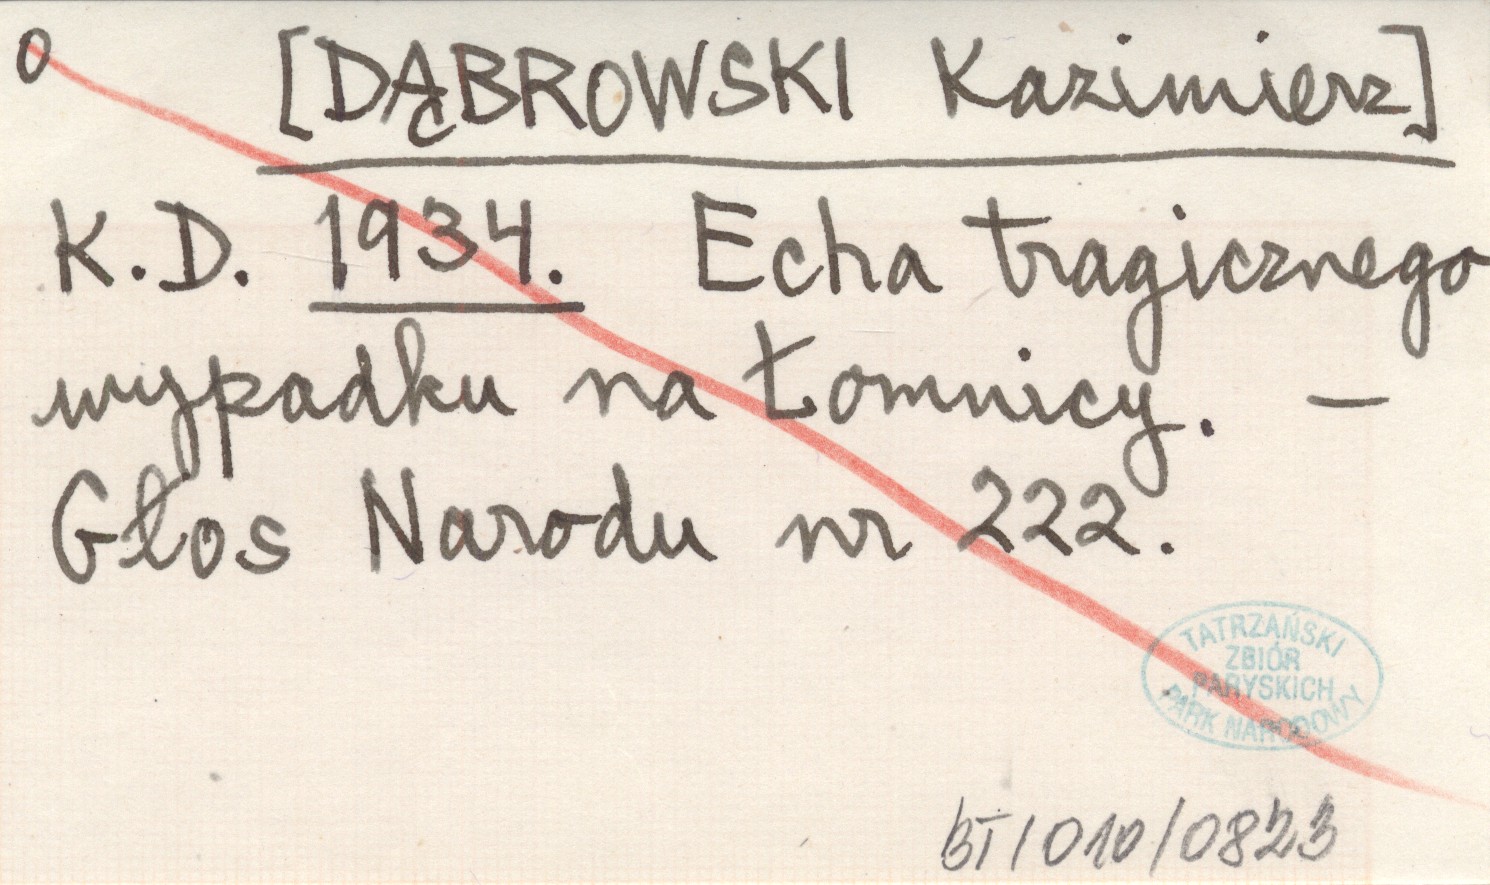 0 [DĄBROWSKI Kazimierz]
K.D. 1934. Echa tragicznego
wypadku na Łomnicy. –
Głos Narodu nr 222.
TATRZAŃSKI
ZBIÓR
PARYSKICH
PARK NARODOWY
BT/010/0823